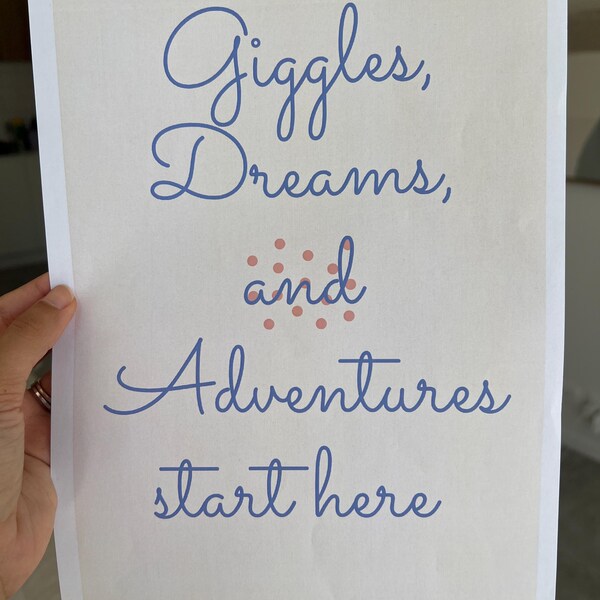 Giggles,
Dreams,
and
Adventures
start here